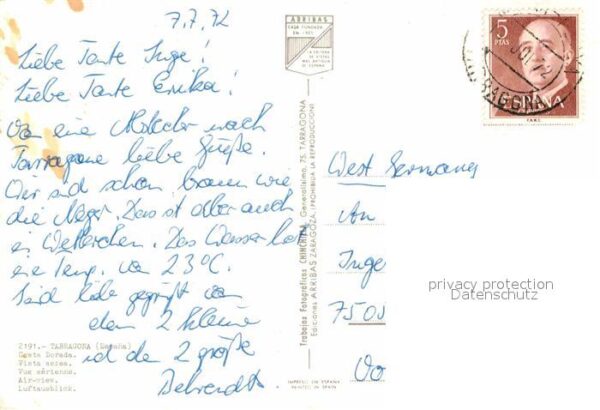 7.7.72
Liebe Tante Inge!
Liebe Tante Erika!
Von eine nach
Tarragona liebe Grüße.
Wir sind schon braun wie
die Neger. Das ist aber auch
ein Wetterchen. Das Wasser hat
eine Temp. von 23°C.
Seid lieb gegrüßt von
den 2 kleine
und den 2 große
Behrendts
2191.- TARRAGONA (España)
Costa Dorada.
Vista aérea.
Vue aérienne.
Air-view.
Luftausblick.
ARRIBAS
CASA FUNDADA
EN 1905
Trabajos Fotográficos CHINCHILLA, Generalísimo, 75. TARRAGONA
Ediciones ARRIBAS ZARAGOZA. (PROHIBIDA LA REPRODUCCION)
IMPRESO EN ESPAÑA
PRINTED IN SPAIN
5
PTAS
ESPAÑA
TARRAGONA
West Germany
An
Inge
privacy protection
Datenschutz